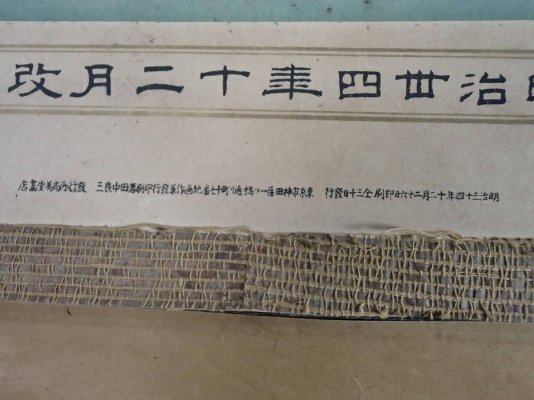 明治卅四年十二月改
明治三十四年十二月二十六日印刷仝三十日發行 東京市神田區一ツ橋通り町十七番地画作兼發行印刷者田中良三 發行所尚美堂畫店